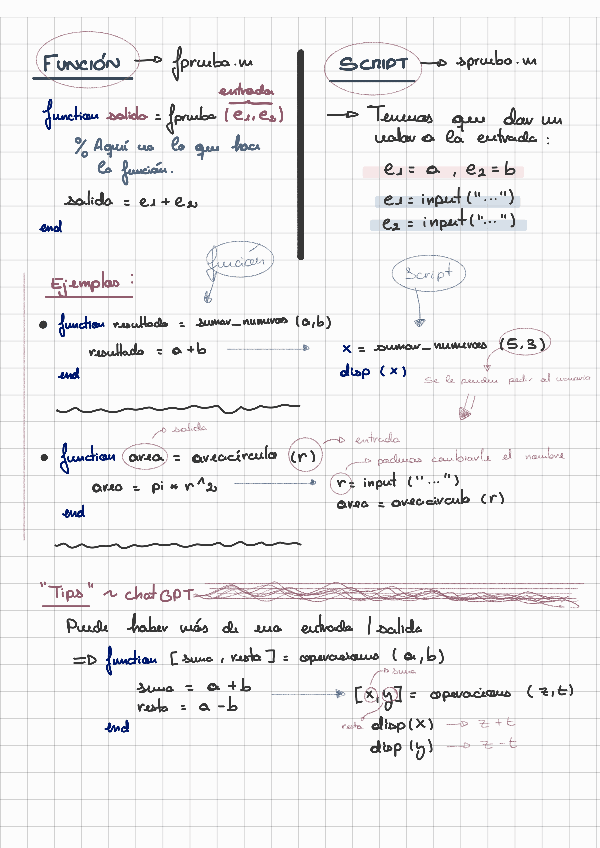 FUNCIÓN → fprueba.m
entrada
function salida = fprueba (e1, e2)
% Aquí va lo que hace
la función.
salida = e1 + e2
end
SCRIPT → sprueba.m
→ Tenemos que dar un
valor a la entrada :
e1 = a , e2 = b
e1 = input ("...")
e2 = input ("...")
función
Script
Ejemplos :
• function resultado = sumar_numeros (a,b)
resultado = a + b
end
x = sumar_numeros (5,3)
disp (x)
Se le pueden pedir al usuario
salida
• function area = areacirculo (r)
entrada
area = pi * r^2
end
podemos cambiarle el nombre
r = input ("...")
area = areacirculo (r)
"Tips" ~ chatGPT
Puede haber más de una entrada / salida
⇒ function [suma, resta] = operaciones (a,b)
suma = a + b
resta = a - b
end
suma
[x,y] = operaciones (z,t)
resta
disp(x) → z + t
disp (y) → z - t